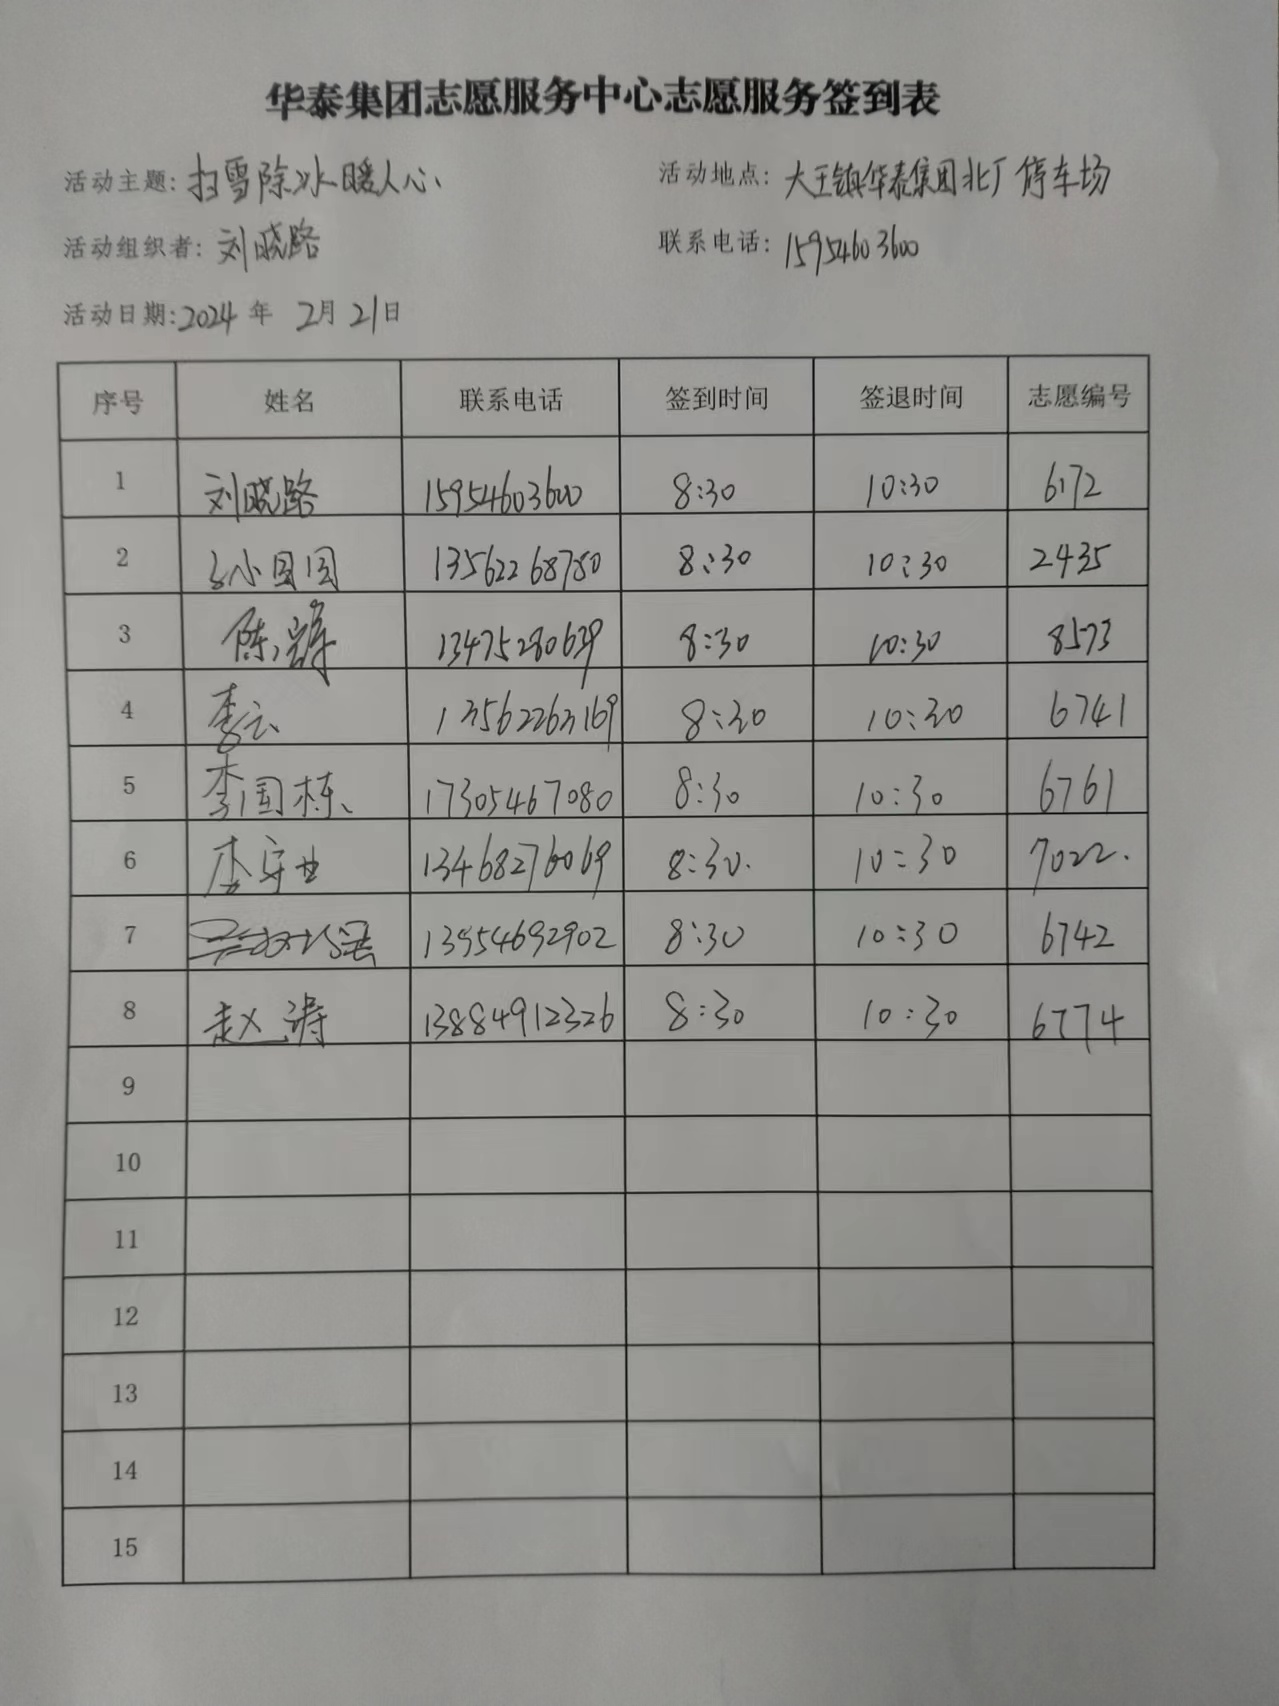 华泰集团志愿服务中心志愿服务签到表
活动主题: 扫雪除冰暖人心 活动地点: 大王镇华泰集团北厂停车场
活动组织者: 刘晓路 联系电话: 15954603600
活动日期: 2024 年 2月21日
序号 姓名 联系电话 签到时间 签退时间 志愿编号
1 刘晓路 15954603600 8:30 10:30 6172
2 孙国国 13562268780 8:30 10:30 2435
3 陈 13475280639 8:30 10:30 8573
4 李云 13562263169 8:30 10:30 6741
5 李国栋 17305467080 8:30 10:30 6761
6 李守业 13468276069 8:30. 10:30 7022.
7 13954692902 8:30 10:30 6742
8 赵涛 13884912326 8:30 10:30 6774
9
10
11
12
13
14
15